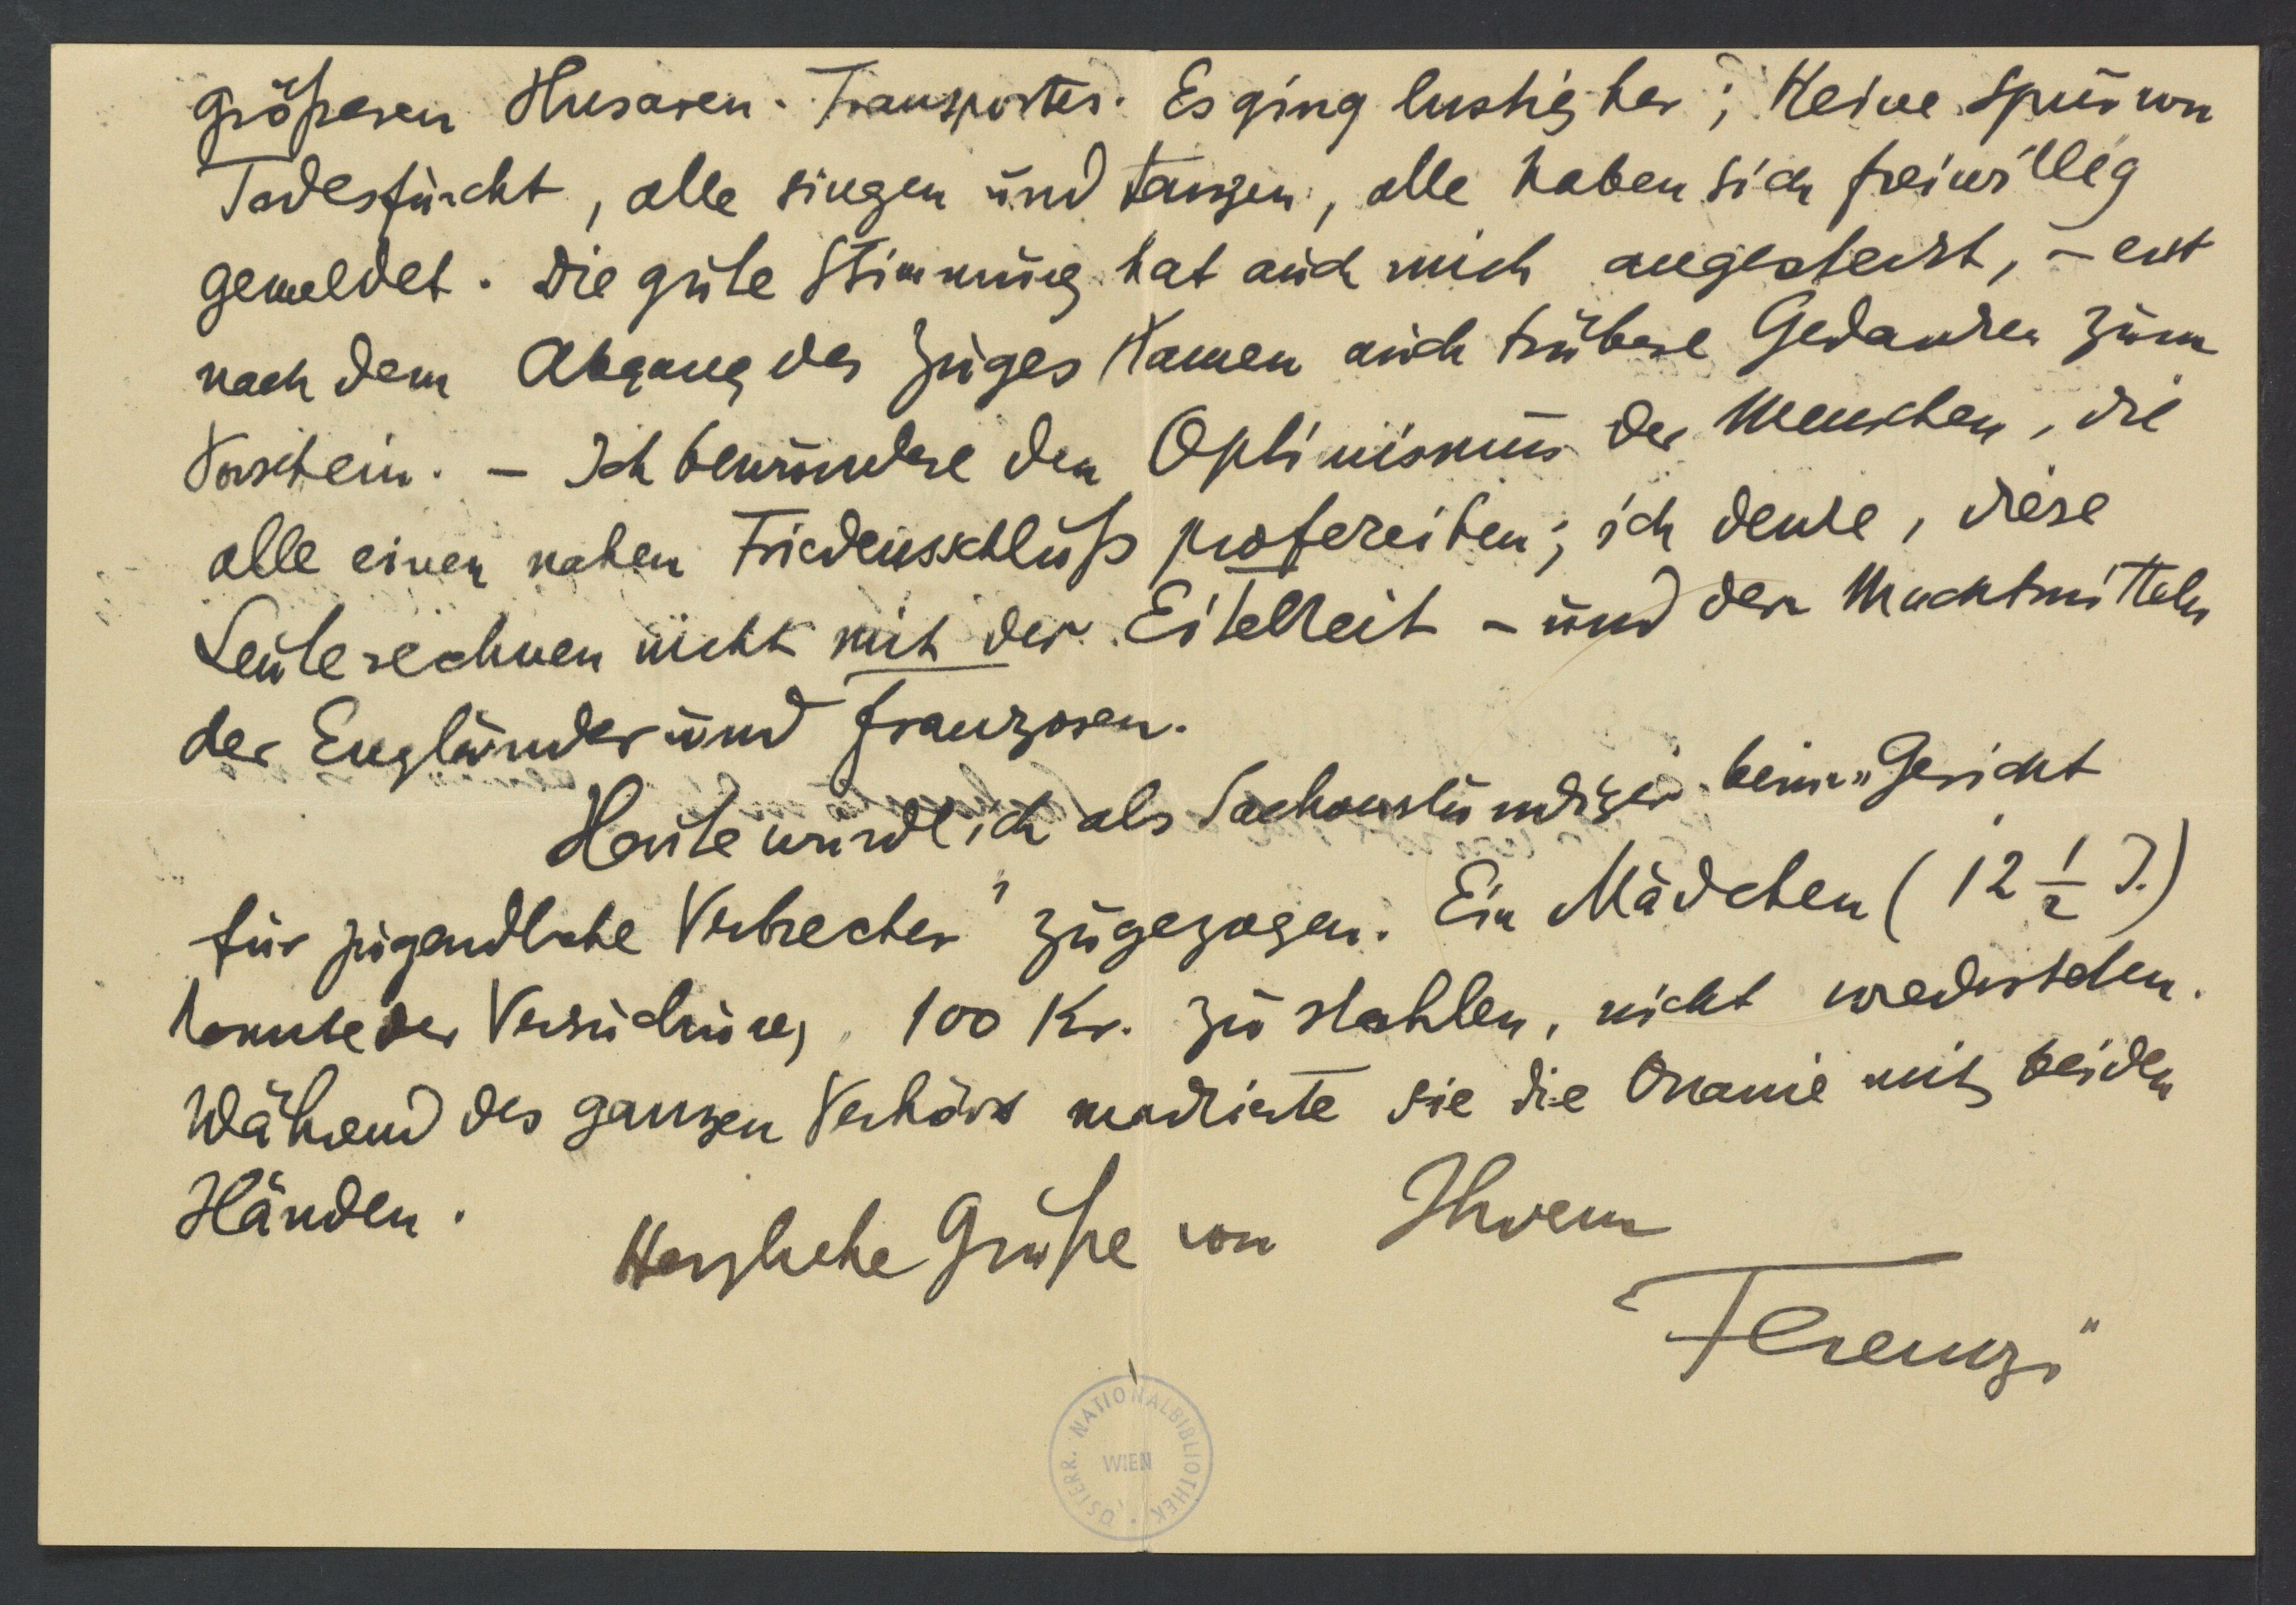 größeren Husaren-Transportes. Es ging lustig her; keine Spur von
Todesfurcht, alle singen und tanzen, alle haben sich freiwillig
gemeldet. Die gute Stimmung hat auch mich angesteckt, – erst
nach dem Abgang des Zuges kamen auch trübere Gedanken zum
Vorschein. – Ich bewundere den Optimismus der Menschen, die
alle einen nahen Friedensschluß profezeihen; ich denke, diese
Leute rechnen nicht mit der Eitelkeit – und den Machtmitteln
der Engländer und Franzosen.
Heute wurde ich als Sachverständiger beim „Gericht
für jugendliche Verbrecher" zugezogen. Ein Mädchen (12 1/2 J.)
konnte der Versuchung, 100 Kr. zu stehlen, nicht wiederstehen.
Während des ganzen Verhörs markirte sie die Onanie mit beiden
Händen.
Herzliche Grüße von Ihrem
Ferenczi
ÖSTERR. NATIONALBIBLIOTHEK
WIEN